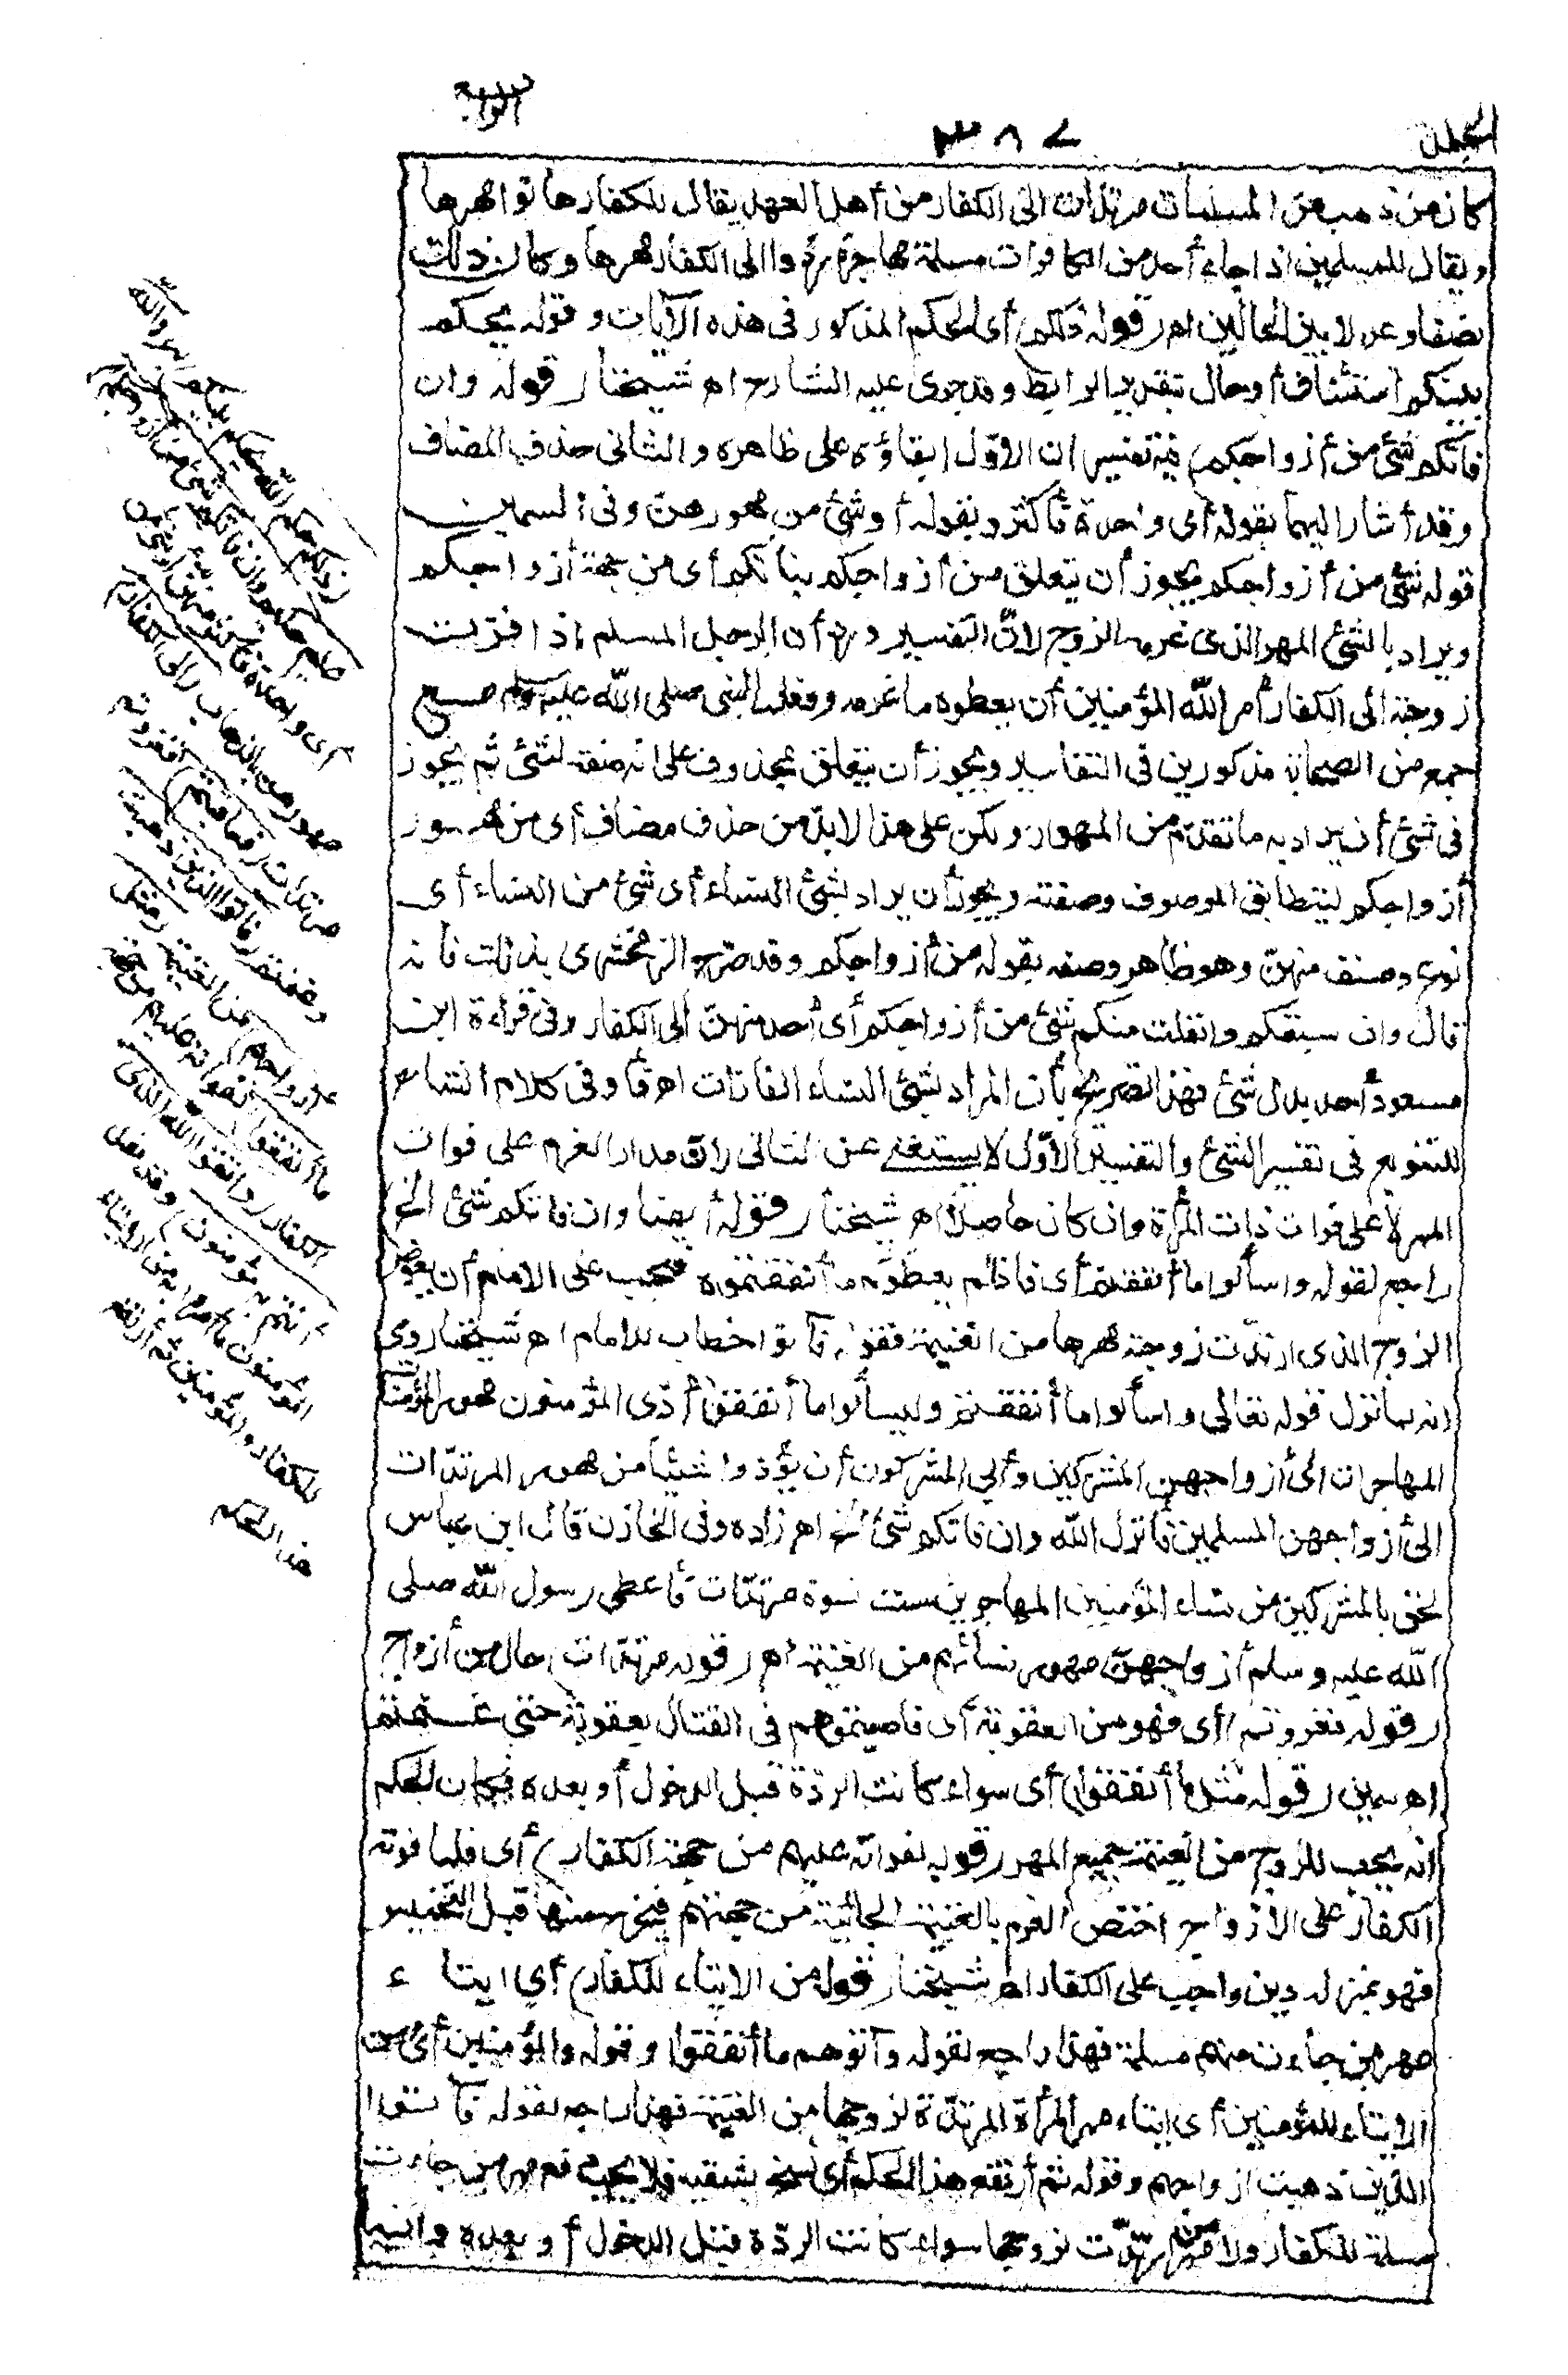 الجمل
٣٨٧
الرابع
كان من ذهب من المسلمات مرتدات الى الكفار من أهل العهد يقال للكفار هاتوا مهرها
ويقال للمسلمين اذا جاء أحد من الكافرات مسلمة مهاجرة ردوا الى الكفار مهرها وكان ذلك
نصفا وعدلا بين الحالين اهـ (قوله ذلكم) أى الحكم المذكور فى هذه الآيات وقوله يحكم
بينكم استئناف أو حال بتقدير الرابط وقد جرى عليه الشارح اهـ شيخنا (قوله وان
فاتكم شئ من أزواجكم) فيه تفسيران الاوّل ابقاؤه على ظاهره والثانى حذف المضاف
وقد أشار اليهما بقوله أى واحدة فأكثر وبقوله أو شئ من مهورهنّ وفى السمين
قوله شئ من أزواجكم يجوز أن يتعلق من أزواجكم بفاتكم أى من جهة أزواجكم
ويراد بالشئ المهر الذى غرمه الزوج لانّ التفسير ورد أن الرجل المسلم اذا فرّت
زوجته الى الكفار أمر الله المؤمنين أن يعطوه ما غرمه وفعله النبى صلى الله عليه وسلم مع
جمع من الصحابة مذكورين فى التفاسير ويجوز أن يتعلق بمحذوف على انه صفة لشئ ثم يجوز
فى شئ أن يراد به ما تقدّم من المهور ولكن على هذا لابدّ من حذف مضاف أى من مهور
أزواجكم ليتطابق الموصوف وصفته ويجوز أن يراد بشئ النساء أى شئ من النساء أى
نوع وصنف منهنّ وهو ظاهر وصفه بقوله من أزواجكم وقد صرّح الزمخشرى بذلك فانه
قال وان سبقكم وانفلت منكم شئ من أزواجكم أى أحد منهنّ الى الكفار وفى قراءة ابن
مسعود أحد بدل شئ فهذا تصريح بأن المراد بشئ النساء الفاتات اهـ فأو فى كلام الشارح
للتنويع فى تفسير الشئ والتفسير الاوّل لا يستغنى عن الثانى لانّ مدار الغرم على فوات
المهر لا على فوات ذات المرأة وان كان حاصلا اهـ شيخنا (قوله أيضا وان فاتكم شئ الخ)
راجع لقوله واسألوا ما أنفقتم أى فاذا لم يعطوكم ما أنفقتموه فيجب على الامام أن يعوض
الزوج الذى ارتدّت زوجته مهرها من الغنيمة فقوله فآتوا خطاب للامام اهـ شيخنا روى
انه لما نزل قوله تعالى واسألوا ما أنفقتم وليسألوا ما أنفقوا أدّى المؤمنون مهور المؤمنات
المهاجرات الى أزواجهن المشركين وأبى المشركون أن يؤدوا شيئا من مهور المرتدّات
الى أزواجهن المسلمين فأنزل الله وان فاتكم شئ الخ اهـ زاده وفى الخازن قال ابن عباس
لحق بالمشركين من نساء المؤمنين المهاجرين ست نسوة مرتدّات فأعطى رسول الله صلى
الله عليه وسلم أزواجهنّ مهور نسائهم من الغنيمة اهـ (قوله مرتدّات) حال من أزواج
(قوله فغزوتم) أى فهو من العقوبة أى فاصبتموهم فى القتال بعقوبة حتى غنمتم
اهـ سمين (قوله مثل ما أنفقوا) أى سواء كانت الردّة قبل الدخول أو بعده فكان الحكم
انه يجب للزوج من الغنيمة جميع المهر (قوله لفواته عليهم من جهة الكفار) أى فلما فوته
الكفار على الازواج اختص الغرم بالغنيمة الجائية من جهتهم فيخرج منها قبل التخميس
فهو بمنزلة دين واجب على الكفار اهـ شيخنا (قوله من الايتاء للكفار) أى ايتاء
مهر من جاءت منهم مسلمة فهذا راجع لقوله وآتوهم ما أنفقوا وقوله والمؤمنين أى من
الايتاء للمؤمنين أى ايتاء مهر المرأة المرتدّة لزوجها من الغنيمة فهذا راجع لقوله فآتوا
الذين ذهبت أزواجهم وقوله ثم ارتفع هذا الحكم أى نسخ بشقيه فلا يجب دفع مهر من جاءت
مسلمة للكفار ولا مهر من ارتدّت لزوجها سواء كانت الردّة قبل الدخول أو بعده
(ذلكم حكم الله يحكم بينكم) به (والله
عليم حكيم وان فاتكم شئ من أزواجكم)
أى واحدة فأكثر منهن أو شئ من
مهورهن بالذهاب (الى الكفار)
مرتدات (فعاقبتم) فغزوتم
وغنمتم (فآتوا الذين ذهبت
أزواجهم) من الغنيمة (مثل
ما أنفقوا) لفواته عليهم من جهة
الكفار (واتقوا الله الذى
أنتم به مؤمنون) وقد فعل
المؤمنون ما أمروا به من الايتاء
للكفار والمؤمنين ثم ارتفع
هذا الحكم